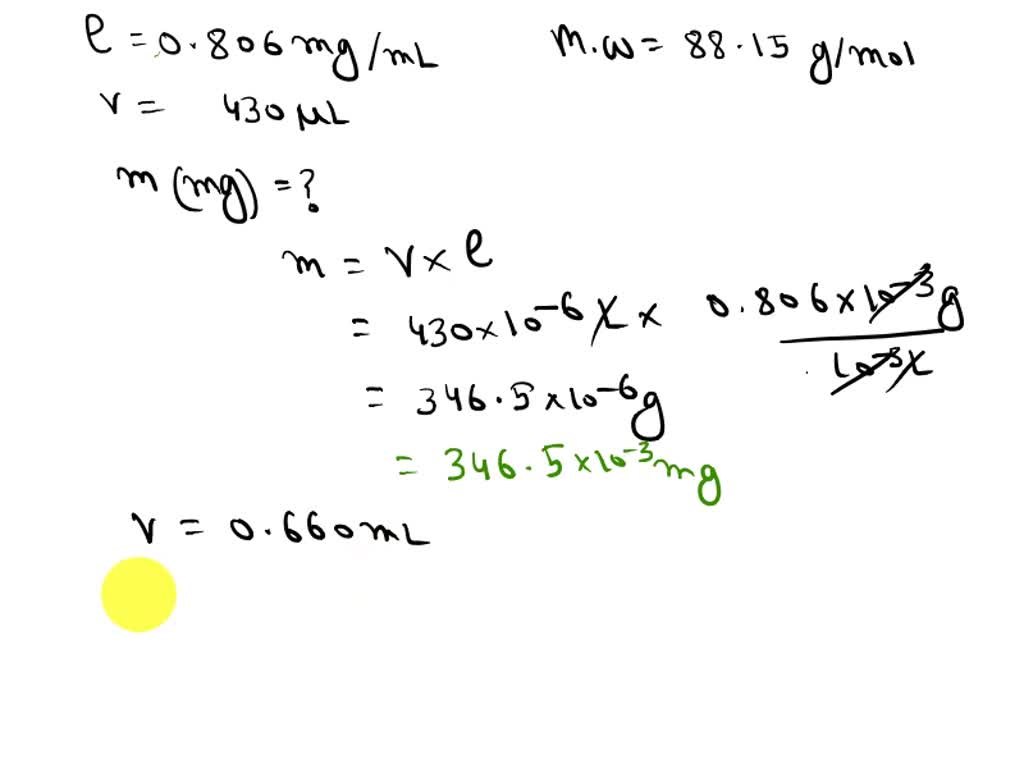 ρ = 0.806 mg/mL
M.W = 88.15 g/mol
V = 430 μL
m (mg) = ?
m = V × ρ
= 430×10⁻⁶ L × 0.806×10⁻³ g / 10⁻³ L
= 346.5×10⁻⁶ g
= 346.5×10⁻³ mg
V = 0.660 mL